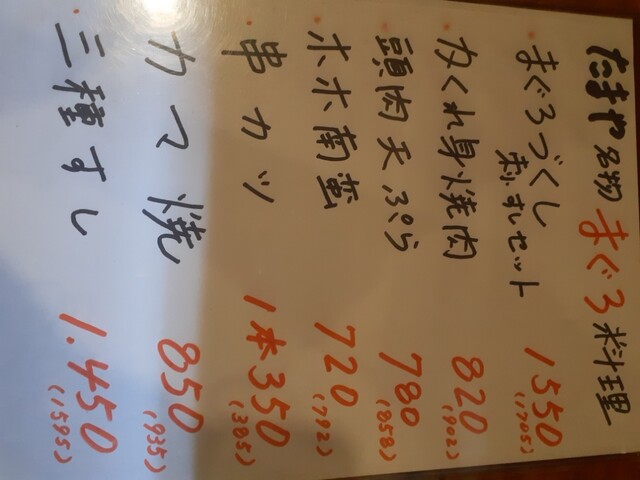 たまや名物 まぐろ料理
・まぐろづくし
刺・すしセット 1550
(1705)
・かくれ身焼肉 820
(902)
・頭肉天ぷら 780
(858)
・ホホ南蛮 720
(792)
・串カツ 1本350
(385)
・カマ焼 850
(935)
・三種すし 1.450
(1595)